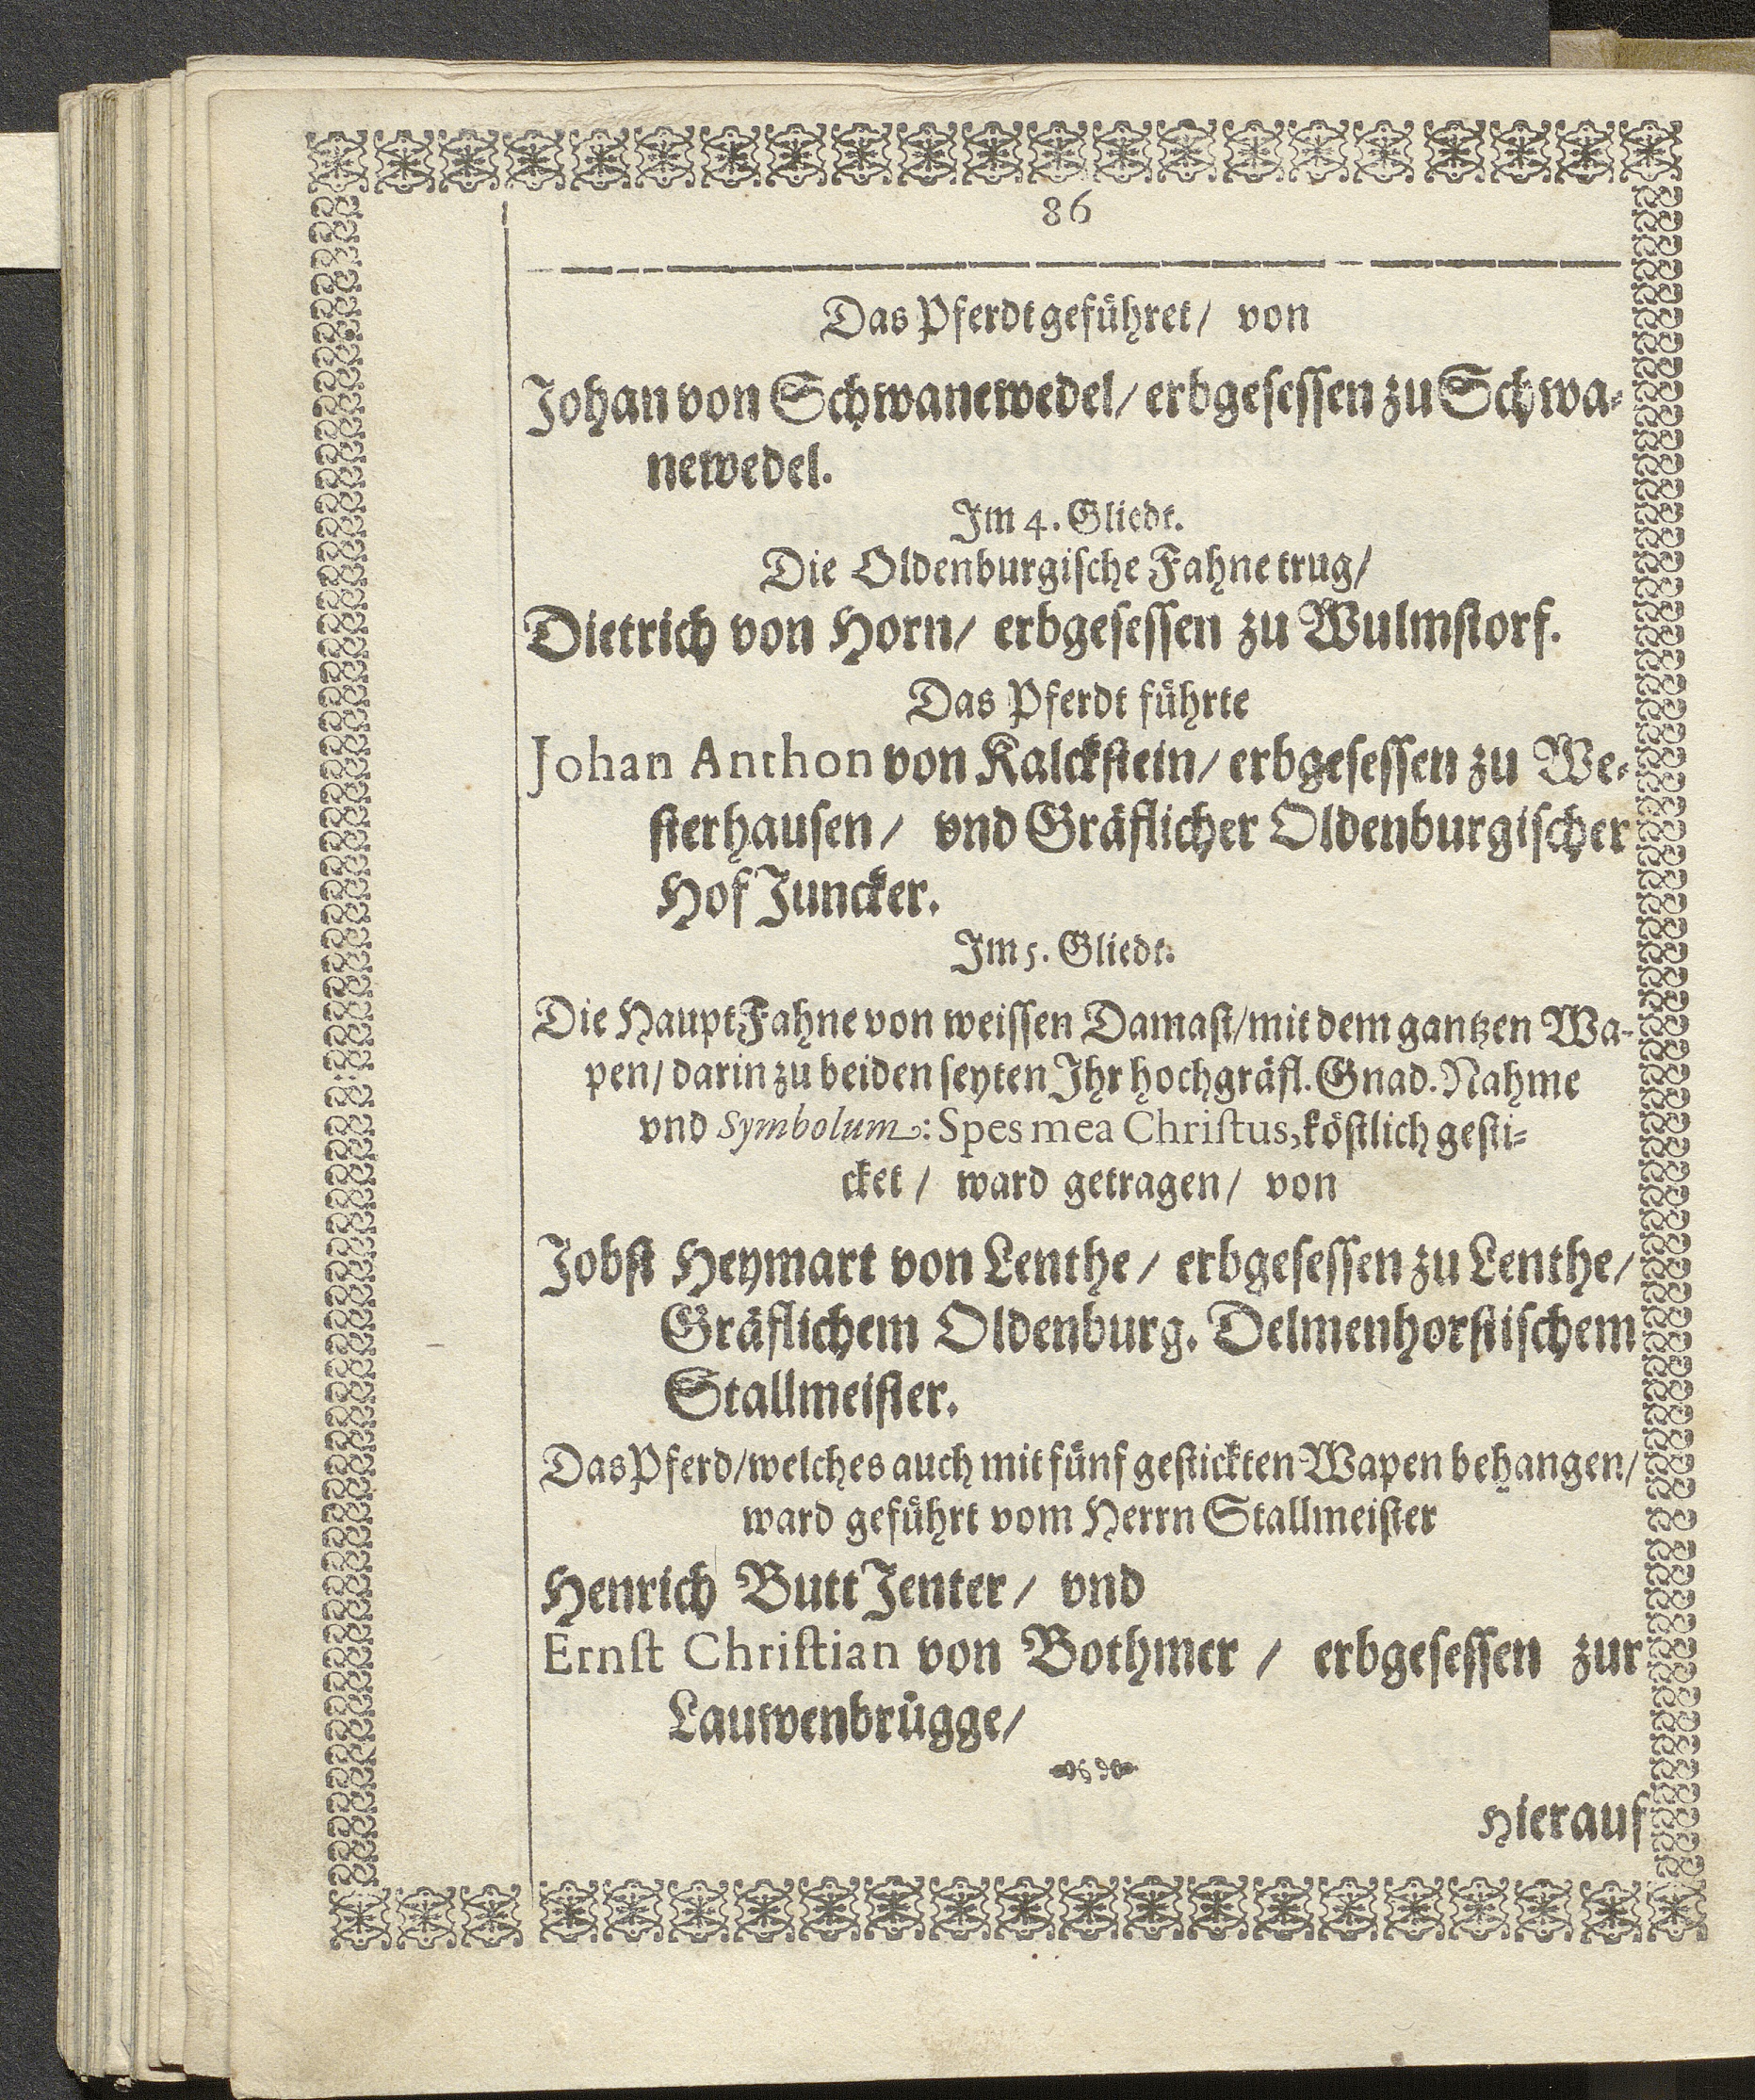 86
Das Pferdt geführet/ von
Johan von Schwanewedel/ erbgesessen zu Schwa-
newedel.
Im 4. Gliedt.
Die Oldenburgische Fahne trug/
Dietrich von Horn/ erbgesessen zu Wulmstorf.
Das Pferdt führte
Johan Anthon von Kalckstein/ erbgesessen zu We-
sterhausen/ vnd Gräflicher Oldenburgischer
Hof Juncker.
Im 5. Gliedt.
Die Haupt Fahne von weissen Damast/ mit dem gantzen Wa-
pen/ darin zu beiden seyten Ihr hochgräfl. Gnad. Nahme
vnd Symbolum: Spes mea Christus, köstlich gesti-
cket/ ward getragen/ von
Jobst Heymart von Lenthe/ erbgesessen zu Lenthe/
Gräflichem Oldenburg. Delmenhorstischem
Stallmeister.
Das Pferd/ welches auch mit fünf gestickten Wapen behangen/
ward geführt vom Herrn Stallmeister
Henrich Butt Jenter/ vnd
Ernst Christian von Bothmer/ erbgesessen zur
Lauwenbrügge/
Hierauf